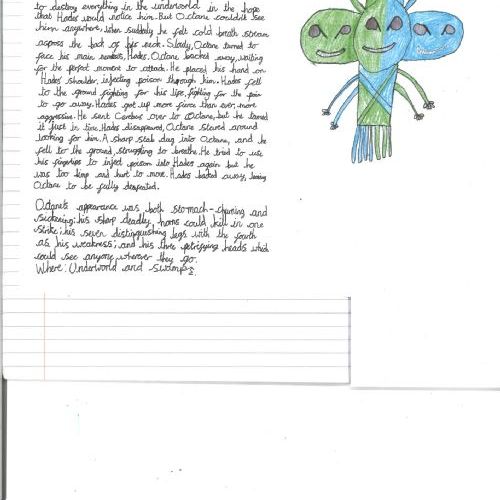 to destroy everything in the underworld in the hope
that Hades would notice him. But Octane couldn't see
him anywhere. When suddenly he felt cold breath stream
across the back of his neck. Slowly, Octane turned to
face his main nemisis, Hades. Octane backed away, waiting
for the perfect moment to attack. He placed his hand on
Hades' shoulder, injecting poison through him. Hades fell
to the ground fighting for his life, fighting for the pain
to go away. Hades got up more fierce than ever, more
aggressive. He sent Cerberus over to Octane, but he
it just in time. Hades disappeared, Octane stared around
looking for him. A sharp stab dug into Octane, and he
fell to the ground, struggling to breathe. He tried to use
his fingertips to inject poison into Hades again but he
was too limp and hurt to move. Hades backed away, leaving
Octane to be fully defeated.
Octane's appearance was both stomach-churning and
sickening: his sharp deadly horns could kill in one
strike; his seven distinguishing legs with the fourth
as his weakness; and his three petrifying heads which
could see anyone wherever they go.
Where: Underworld and swamps